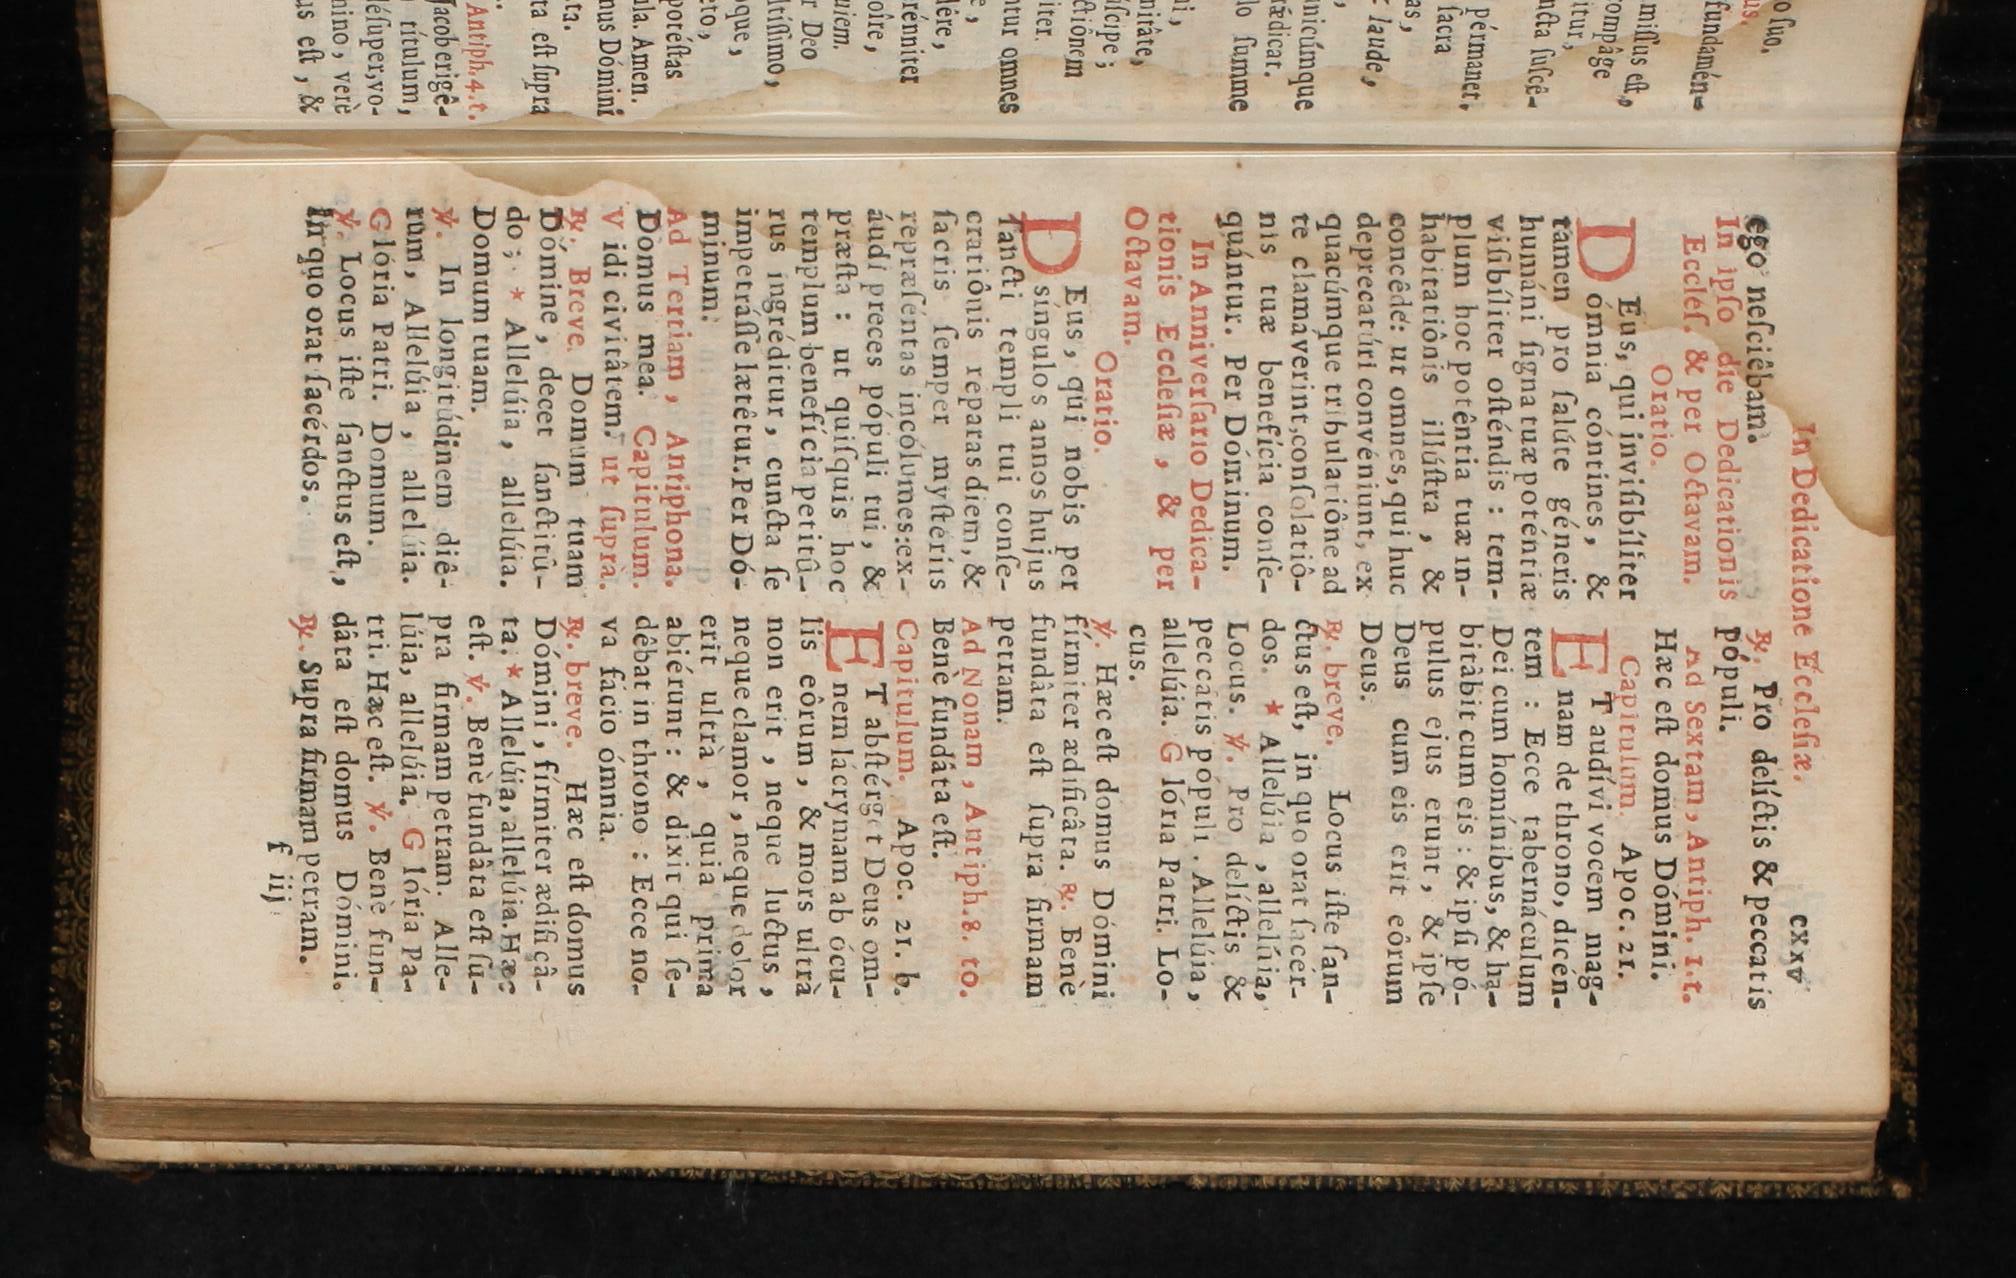 o ſuo.
us.
fundamén-
miſſus eſt,
ompâge
itur,
ncta ſuſcê-
pérmanet,
ſacra
as,
laude,
nicúnque
rædicat.
lo ſumme
i,
nitâte,
úſcipe;
ctiônem
iter.
ntur omnes
e,
lêre,
rénniter
oîre,
uiem.
r Deo
ltíſſimo,
oque,
eto,
poréſtas
ula. Amen.
nus Dómini
ta.
ta eſt ſupra
Antiph. 4. t.
Jacob erigê-
titulum,
éſuper, vo-
nino, verè
us eſt, &
In Dedicatione Eccleſiæ. cxxv
ego neſciêbam.
In ipſo die Dedicationis
Eccleſ. & per Octavam.
Oratio.
DEus, qui inviſibíliter
ómnia cóntines, &
tamen pro ſalúte géneris
humáni ſigna tuæ poténtiæ
viſibíliter oſténdis : tem-
plum hoc potêntia tuæ in-
habitatiônis illúſtra, &
concêde: ut omnes, qui huc
deprecatúri convéniunt, ex
quacúmque tribulatiône ad
te clamáverint, conſolatiô-
nis tuæ benefícia conſe-
quántur. Per Dóminum.
In Anniverſario Dedica-
tionis Eccleſiæ, & per
Octavam.
Oratio.
DEus, qui nobis per
síngulos annos hujus
ſancti templi tui conſe-
cratiônis réparas diem, &
ſacris ſemper myſtériis
repræſéntas incólumes: ex-
áudi preces pópuli tui, &
præſta : ut quiſquis hoc
templum benefícia petitû-
rus ingréditur, cuncta ſe
impetráſſe lætêtur. Per Dó-
minum.
Ad Tertiam, Antiphona.
Domus mea. Capitulum.
Vidi civitâtem. ut ſuprà.
℟. Breve. Domum tuam
Dómine, decet ſanctitû-
do; * Allelúia, allelúia.
Domum tuam.
℣. In longitúdinem diê-
rum, Allelúia, allelúia.
Glória Patri. Domum.
℣. Locus iſte ſanctus eſt,
In quo orat ſacérdos.
℟. Pro delíctis & peccatis
pópuli.
Ad Sextam, Antiph. 1. t.
Hæc eſt domus Dómini.
Capitulum. Apoc. 21.
ET audívi vocem mag-
nam de throno, dicén-
tem : Ecce tabernáculum
Dei cum homínibus, & ha-
bitâbit cum eis : & ipſi pó-
pulus ejus erunt, & ipſe
Deus cum eis erit eôrum
Deus.
℟. breve. Locus iſte ſan-
ctus eſt, in quo orat ſacér-
dos. * Allelúia, allelúia,
Locus. ℣. Pro delíctis &
peccátis pópuli. Allelúia,
allelúia. Glória Patri. Lo-
cus.
℣. Hæc eſt domus Dómini
fírmiter ædificâta. ℟. Benè
fundâta eſt ſupra firmam
petram.
Ad Nonam, Antiph. 8. to.
Benè fundâta eſt.
Capitulum. Apoc. 21. b.
ET abſtérget Deus om-
nem lácrymam ab ócu-
lis eôrum, & mors ultrà
non erit, neque luctus,
neque clamor, neque dolor
erit ultrà, quia prima
abiérunt : & dixit qui ſe-
dêbat in throno : Ecce no-
va fácio ómnia.
℟. breve. Hæc eſt domus
Dómini, fírmiter ædificâ-
ta. * Allelúia, allelúia. Hæc
eſt. ℣. Benè fundâta eſt ſu-
pra firmam petram. Alle-
lúia, allelúia. Glória Pa-
tri. Hæc eſt. ℣. Benè fun-
dâta eſt domus Dómini.
℟. Supra firmam petram.
f iij